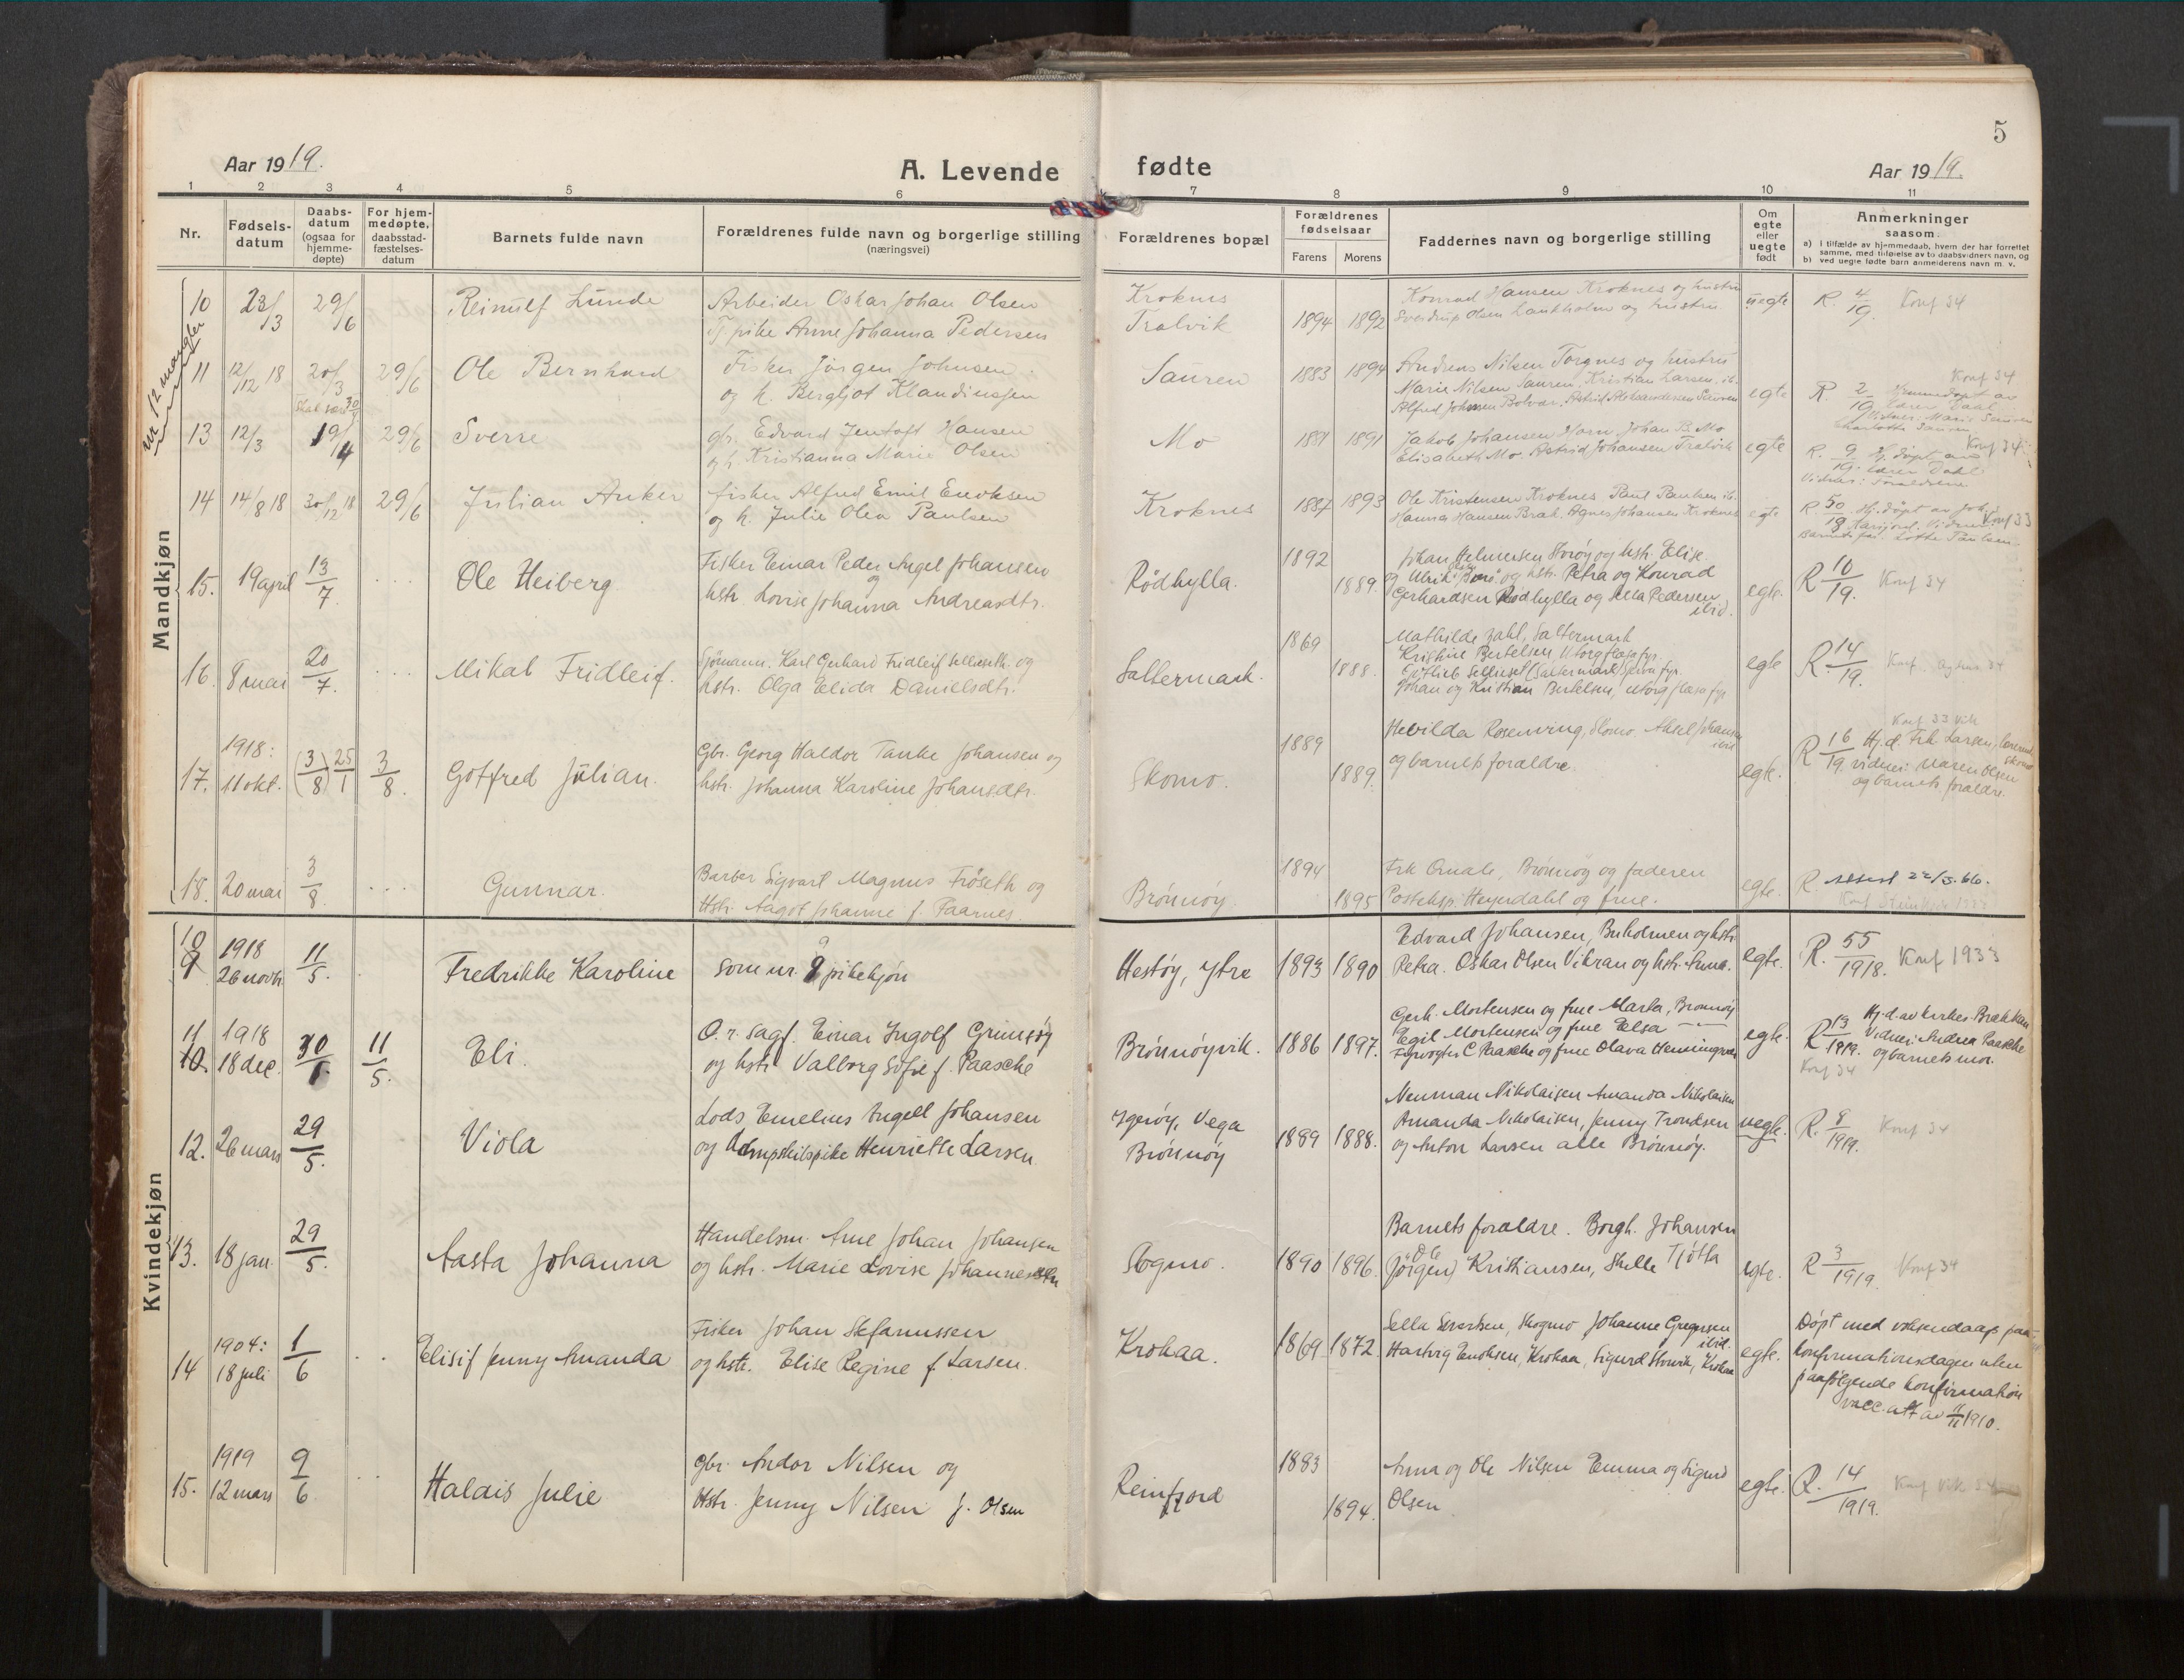 5
Aar 1919.
A. Levende
fødte
Aar 1919.
1 2 3 4 5 6 7 8 9 10 11
Nr.
Fødsels-
datum
Daabs-
datum
(ogsaa for
hjemme-
døpte)
For hjem-
medøpte,
daabsstad-
fæstelses-
datum
Barnets fulde navn
Forældrenes fulde navn og borgerlige stilling
(næringsvei)
Forældrenes bopæl
Forældrenes
fødselsaar
Farens Morens
Faddernes navn og borgerlige stilling
Om
egte
eller
uegte
født
Anmerkninger
saasom:
a) i tilfælde av hjemmedaab, hvem der har forrettet
samme, med tilføielse av to daabsvidners navn, og
b) ved uegte fødte barn anmelderens navn m. v.
Mandkjøn
nr 12 mangler
10 23/3 29/6 Reinulf Lunde
Arbeider Oskar Johan Olsen
Tj pike Anne Johanna Pedersen
Kroknes
Tralvik 1894 1892
Konrad Hansen Kroknes og hustru
Sverdrup Olsen Lankholm og hustru
uegte R. 4/19. Konf 34
11 12/12 18 20/3 29/6 Ole Bernhard
Fisker Jørgen Johnsen
og h. Bergljot Klaudinssen
Sauren 1883 1894
Andreas Nilsen Torgnes og hustru
Marie Nilsen Sauren, Kristian Larsen, ib.
Alfred Johnsen Bolvær. Astrid Aleksandersen Sauren
egte R. 2/19 Hjemmedøpt av
lærer Dahl
Konf 34
13 12/3 19/4 29/6 Sverre
skal være 30/
gbr. Edvard Jentoft Hansen
og h. Kristianna Marie Olsen
Mo 1891
Jakob Johansen Horn Johan B. Mo
Elisabeth Mo. Astrid Johansen Tralvik
egte R. 9/19. Hj. døpt av
lærer Dahl
Vidner: Forældrene
Konf 34
14 14/8 18 30/12 18 29/6 Julian Anker
fisker Alfred Emil Enoksen
og h. Julie Olea Paulsen
Kroknes 1887 1893
Ole Kristensen Kroknes Paul Paulsen ib.
Hanna Hansen Bræk. Agnes Johansen Kroknes
egte R 50/19 Hj. døpt av Joh.
Konf 33
15. 19 april 13/7. Ole Heiberg.
Fisker Einar Peder Angel Johansen
og
hstr. Lovise Johanna Andreasdtr.
Rødhylla. 1892 1889.
Johan Helmersen Storøy og hstr. Elise.
og hstr. Petra og Konrad
Gerhardsen Rødhylla og Sella Pedersen
ibid.
egte. R 10/19. Konf 34
16. 8 mai 20/7. Mikal Fridleif.
Sjømann. Karl Gerhard Fridleif Sellæseth. og
hstr. Olga Elida Danielsdtr.
Saltermark. 1869 1888.
Mathilde Zahl, Saltermark
Kristine Bertelsen Utorgflæsa fyr.
Johan og Kristian Bertelsen, Utorgflæsa fyr
egte R 14/19. Konf.
17. 1918:
11 okt. (3/8) 25/1 3/8. Gotfred Julian.
Gbr. Georg Haldor Tanke Johansen og
hstr. Johanna Karoline Johansdtr.
Skomo. 1889 1889.
Hevilda Rosenving, Skomo. Aksel Johansen
ibid
og barnets forældre.
egte. R 16/19. Hj. d. Frk. Larsen, lærerinde
Skomo
vidner: Maren Olsen
og barnets forældre.
Konf 33 Vik
18. 20 mai 3/8. Gunnar.
Barber Sigvart Magnus Frøseth og
Hstr. Aagot Johanne f. Paarnes.
Brønnøy. 1894 1895
Frk Ornæle, Brønnøy og faderen
Posteksp. Heyerdahl og frue.
egte. R. attest 22/3.66.
Kvindekjøn
10 1918
26 novbr. 11/5. Fredrikke Karoline
som nr. 9 pikekjøn
Hestøy, Ytre 1893 1890
Edvard Johansen, Buholmen og hstr.
Petra. Oskar Olsen Vikran og hstr. Anna.
egte. R. 55/1918. Konf 1933
11 1918
18 dec. 30/1. 11/5. Eli.
O.r. sagf. Einar Ingolf Grimsøy
og hstr Valborg Sofie f. Paasche
Brønnøyvik. 1886 1897.
Gerh. Mortensen og frue Marta, Brønnøy
Egil Mortensen og frue Elsa
Fyrvogter C Paasche og frue Olava Henningsen
egte. R 13/1919. Hj.d. av kirkes. Brækkan
Vidner: Andrea Paasche
og barnets mor.
Konf 34
12. 26 mars 29/5. Viola
Lods Emelius Angell Johansen
og dampskibspike Henriette Larsen.
Igerøy, Vega
Brønnøy 1889 1888.
Neuman Nikolaisen Amanda Nikolaisen
Amanda Nikolaisen, Jenny Trondsen
og Anton Larsen alle Brønnøy.
uegte. R. 8/1919. Konf 34
13. 18 jan. 29/5. Aasta Johanna
Handelsm. Arne Johan Johansen
og hstr. Marie Lovise Johannesdtr
Sogmo. 1890 1896.
Barnets forældre. Borgh. Johansen
Ole
(Jørgen) Kristiansen, Skelle Tjøtta
egte. R 3/1919. Konf 34
14 1904:
18 juli 1/6 Elisif Jenny Amanda
Fisker Johan Stefanussen
og hstr. Elise Regine f Larsen.
Krokaa. 1869 1872.
Sella Sivertsen, Skogmo Johanne Gregersen
ibid.
Hartvig Enoksen, Krokaa, Sigurd Storvik, Krokaa
egte. Døpt med voksendaap paa
konfirmationsdagen uten
paafølgende konfirmation
vacc. att av 11/11 1910.
15. 1919
12 mars 9/6 Halais Julie
gbr. Andor Nilsen og
Hstr. Jenny Nilsen f. Olsen
Reinfjord 1883 1894.
Anna og Ole Nilsen Emma og Sigurd
Olsen
egte. R. 14/1919. Konf Vik 34